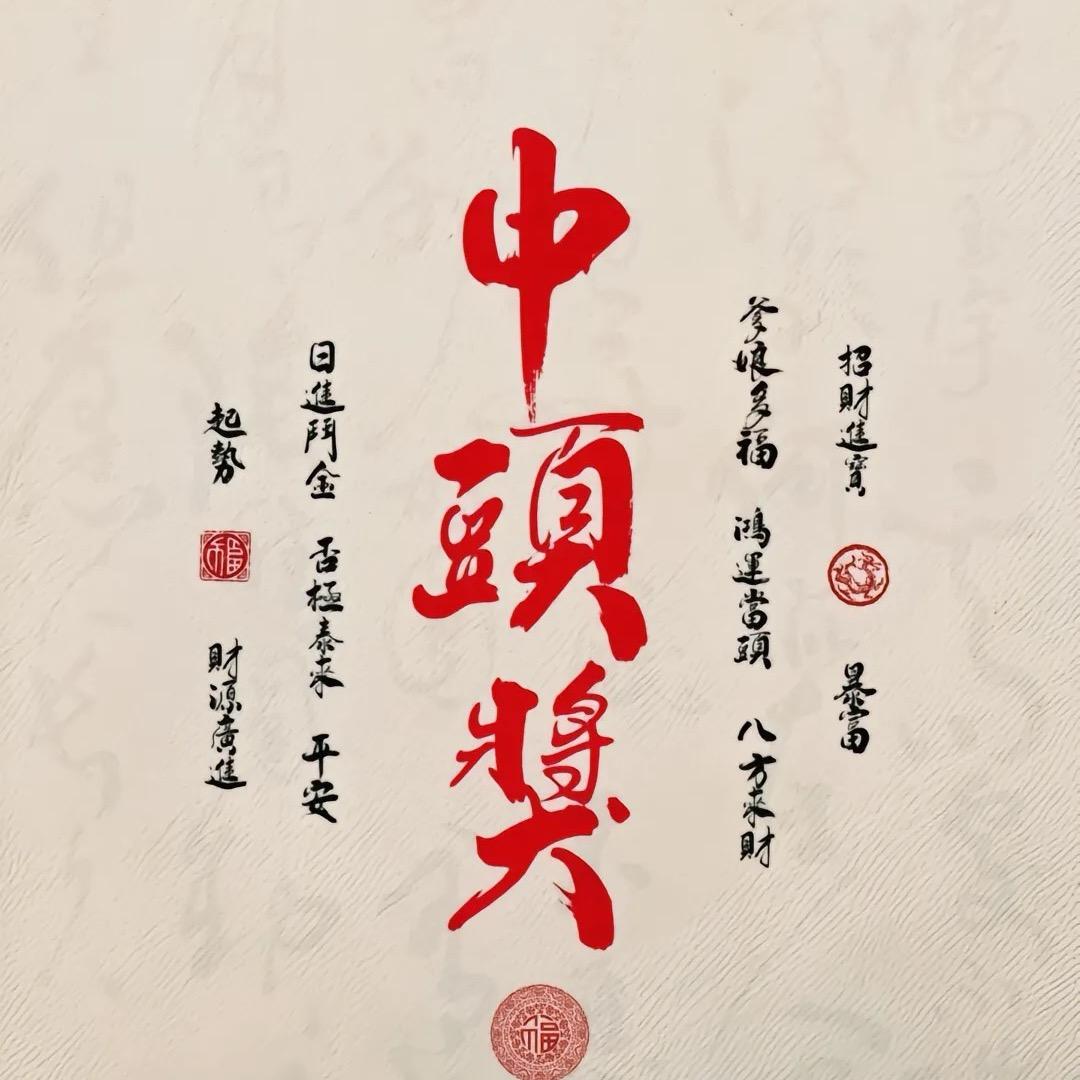 招財進寶
暴富
爹娘多福 鴻運當頭 八方來財
中頭獎
日進鬥金 否極泰來 平安
起勢
福
財源廣進
福